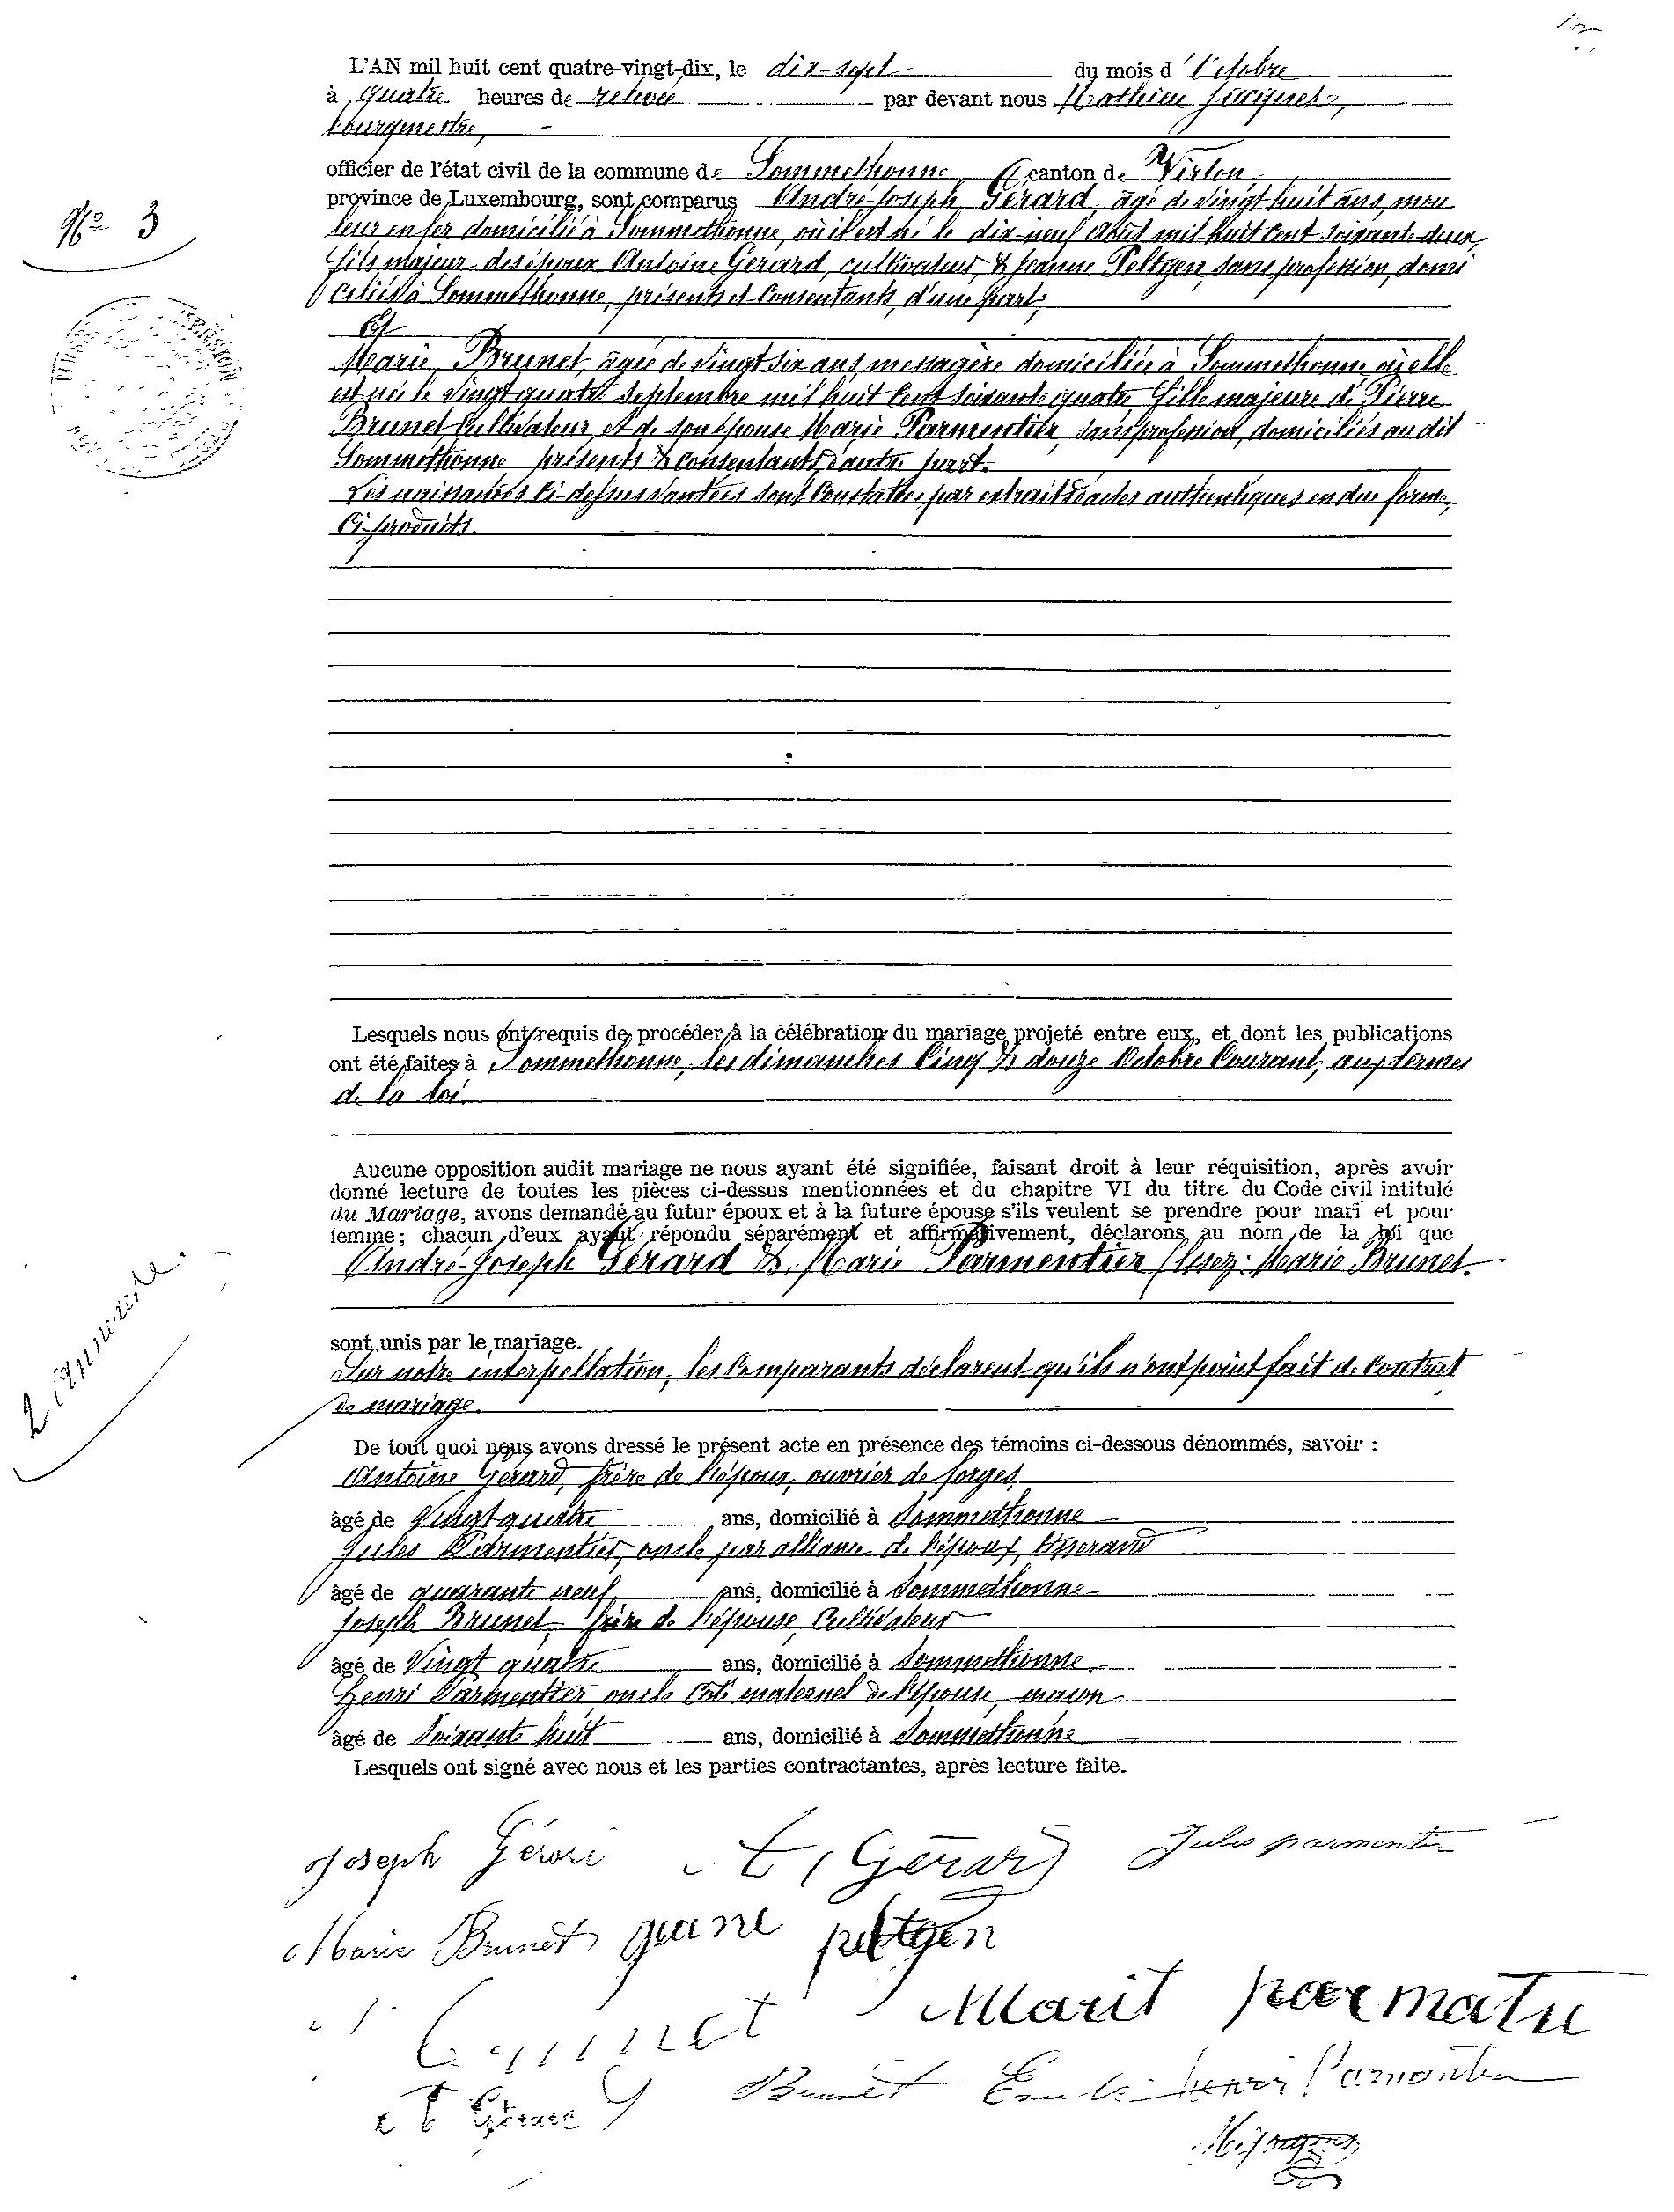 L'AN mil huit cent quatre-vingt-dix, le dix-sept du mois d'Octobre
à quatre heures de relevée par devant nous Mathieu Jacques,
bourgmestre,
officier de l'état civil de la commune de Sommethonne, canton de Virton
province de Luxembourg, sont comparus André-Joseph Gérard, âgé de vingt-huit ans, mou
leur en fer domicilié à Sommethonne, où il est né le dix-neuf Août mil huit cent soixante-deux,
fils majeur des époux Antoine Gérard, cultivateur, & Jeanne Peltgen, sans profession, domi
ciliés à Sommethonne, présents et consentants, d'une part;
Et
Marie Brunet, âgée de vingt six ans, messagère domiciliée à Sommethonne, où elle
est née le vingt quatre septembre mil huit cent soixante quatre, fille majeure de Pierre
Brunet Cultivateur et de son épouse Marie Parmentier, sans profession, domiciliés au dit
Sommethonne présents & consentants, d'autre part.
Les naissances ci-dessus vantées sont constatées par extrait d'actes authentiques en due forme,
ci-produits.
Nº 3
Lesquels nous ont requis de procéder à la célébration du mariage projeté entre eux, et dont les publications
ont été faites à Sommethonne, les dimanches cinq & douze Octobre courant, aux termes
de la loi.
Aucune opposition audit mariage ne nous ayant été signifiée, faisant droit à leur réquisition, après avoir
donné lecture de toutes les pièces ci-dessus mentionnées et du chapitre VI du titre du Code civil intitulé
du Mariage, avons demandé au futur époux et à la future épouse s'ils veulent se prendre pour mari et pour
femme; chacun d'eux ayant répondu séparément et affirmativement, déclarons au nom de la loi que
André-Joseph Gérard & Marie Parmentier (lisez: Marie Brunet.
sont unis par le mariage.
Sur notre interpellation, les comparants déclarent qu'ils n'ont point fait de contrat
de mariage.
De tout quoi nous avons dressé le présent acte en présence des témoins ci-dessous dénommés, savoir :
Antoine Gérard, frère de l'époux, ouvrier de forges,
âgé de vingt quatre ans, domicilié à Sommethonne
Jules Parmentier, oncle par alliance de l'époux, tisserand
âgé de quarante neuf ans, domicilié à Sommethonne
Joseph Brunet, frère de l'épouse, Cultivateur
âgé de vingt quatre ans, domicilié à Sommethonne
Henri Parmentier, oncle côté maternel de l'épouse, maçon
âgé de soixante huit ans, domicilié à Sommethonne
Lesquels ont signé avec nous et les parties contractantes, après lecture faite.
Joseph Gérard A Gérard Jules parmentier
Marie Brunet jeane peltgen
Marit parmatie
Brunet Henri Parmentier